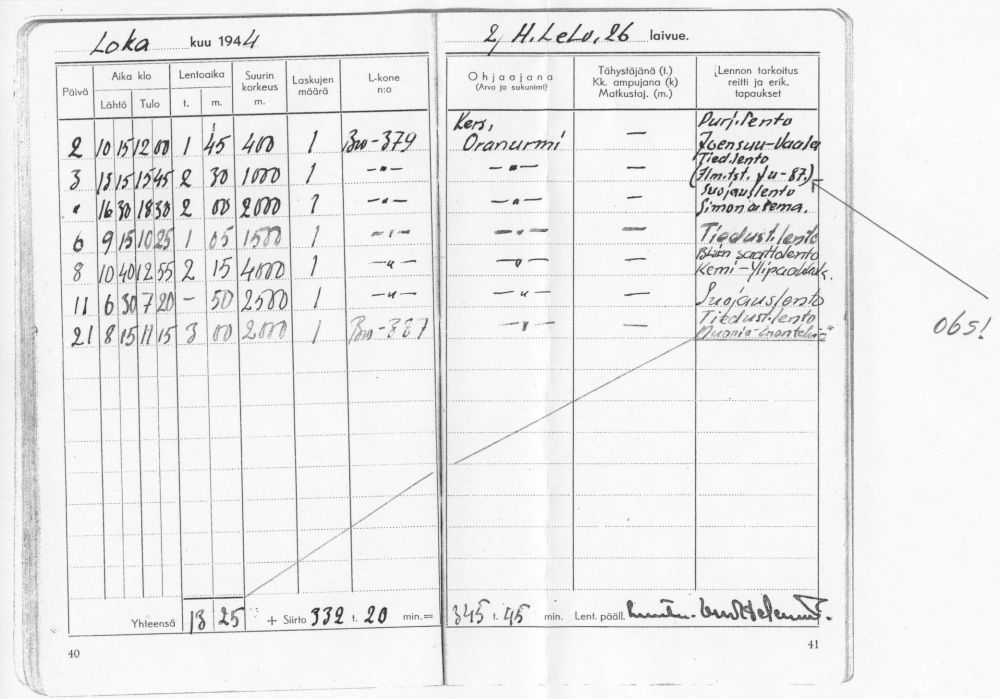 Loka kuu 1944
2, H.LeLv. 26 laivue.
Päivä Aika klo Lentoaika Suurin korkeus m. Laskujen määrä L-kone n:o
Lähtö Tulo t. m.
Ohjaajana (Arvo ja sukunimi)
Tähystäjänä (t.) Kk. ampujana (k) Matkustaj. (m.)
Lennon tarkoitus reitti ja erik. tapaukset
2 10 15 12 00 1 45 400 1 Bw-379 Kers, Oranurmi — Purj.lento Joensuu-Vaala
3 13 15 15 45 2 30 1000 1 -"- -"- — Tied.lento (Ilm.tst. Ju-87.)
" 16 30 18 30 2 00 2000 1 -"- -"- — Suojauslento Simon asema.
6 9 15 10 25 1 05 1500 1 -"- -"- — Tiedust.lento
8 10 40 12 55 2 15 4000 1 -"- -"- — saattolento Kemi-
11 6 30 7 20 - 50 2500 1 -"- -"- — Suojauslento
21 8 15 11 15 3 00 2000 1 Bw-387 -"- — Tiedust.lento
obs!
Yhteensä 13 25 + Siirto 332 t. 20 min.= 345 t. 45 min. Lent. pääll.
40
41